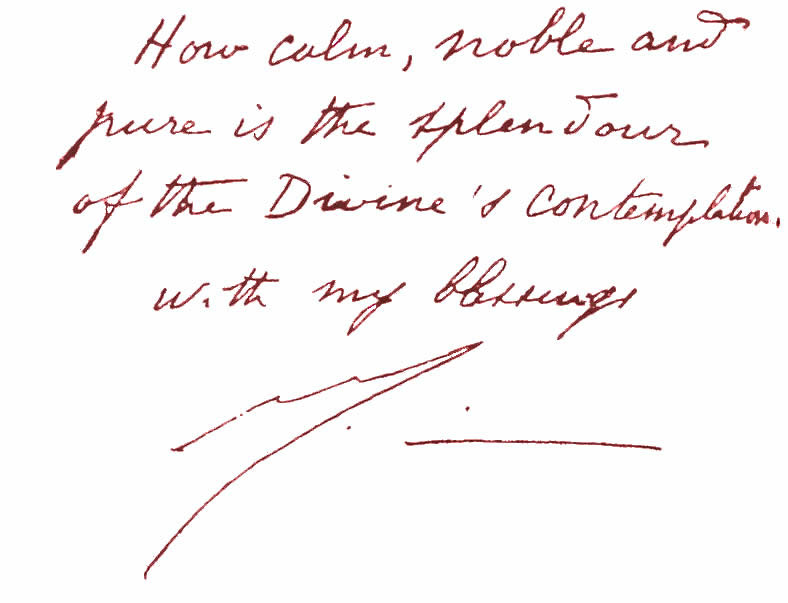 How calm, noble and
pure is the splendour
of the Divine's contemplation.
with my blessings